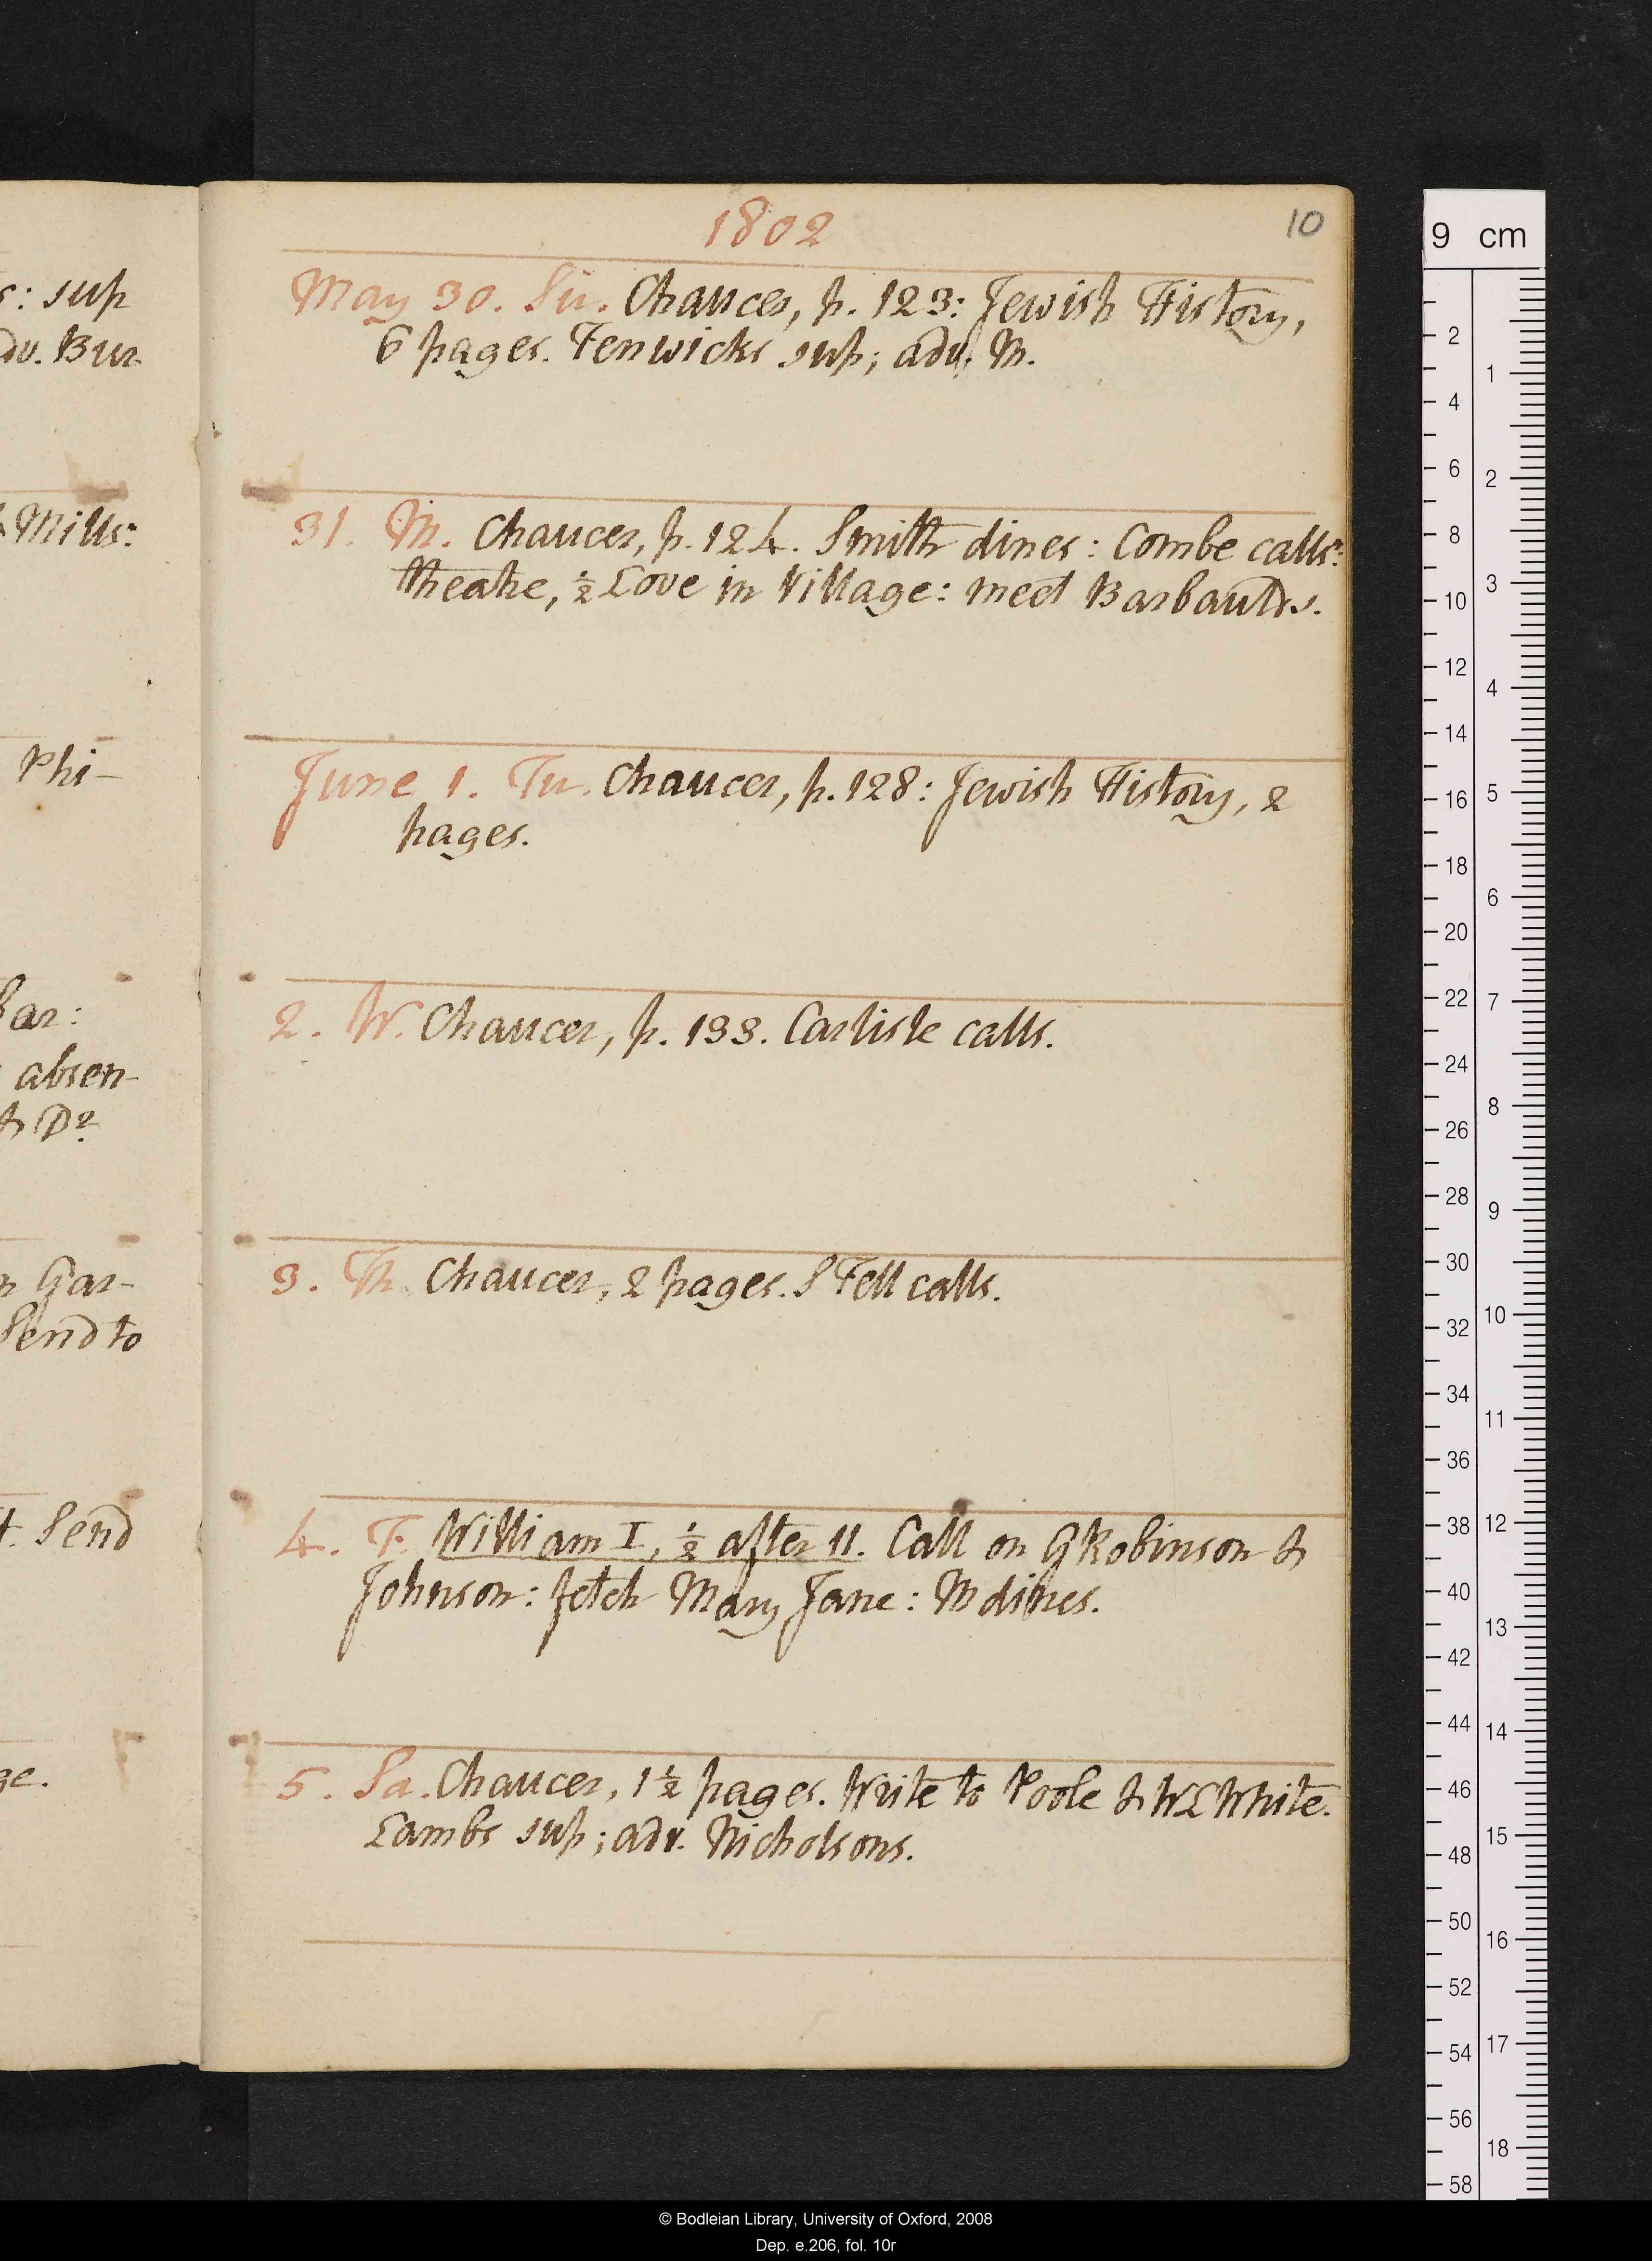 s: sup
adv. Bur
Mills:
Phi-
Bar:
absen-
Do
Gar-
Send to
Send
ge.
1802
10
May 30. Su. Chaucer, p. 123: Jewish History,
6 pages. Fenwicks sup; adv. M.
31. M. Chaucer, p. 124. Smith dines: Combe calls:
theatre, ½ Love in Village: meet Barbaulds.
June 1. Tu. Chaucer, p. 128: Jewish History, 2
pages.
2. W. Chaucer, p. 133. Carlisle calls.
3. Th. Chaucer, 2 pages. S Fell calls.
4. F. William I, ½ after 11. Call on G Robinson &
Johnson: fetch Mary Jane: M dines.
5. Sa. Chaucer, 1½ pages. Write to Poole & W L White.
Lambs sup; adv. Nicholsons.
9 cm
2
4
6
8
10
12
14
16
18
20
22
24
26
28
30
32
34
36
38
40
42
44
46
48
50
52
54
56
58
1
2
3
4
5
6
7
8
9
10
11
12
13
14
15
16
17
18
© Bodleian Library, University of Oxford, 2008
Dep. e.206, fol. 10r